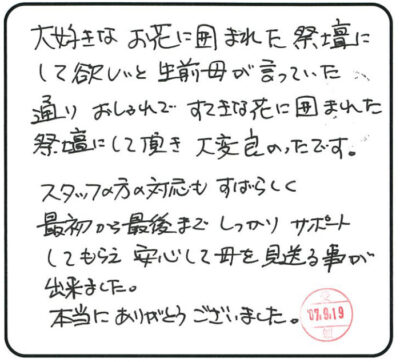 大好きな お花に囲まれた 祭壇に
して欲しいと 生前母が言っていた
通り おしゃれで すてきな花に囲まれた
祭壇にして頂き 大変良かったです。
スタッフの方の対応も すばらしく
最初から最後まで しっかり サポート
してもらえ 安心して母を見送る事が
出来ました。
本当に ありがとう ございました。
'07.9.19